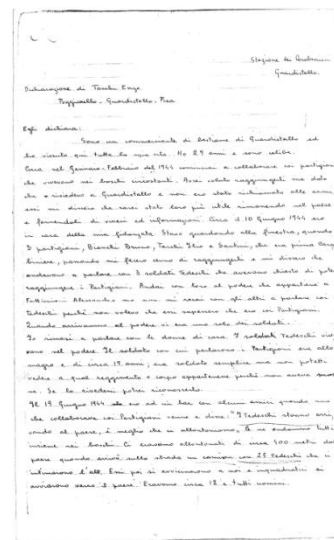 Stazione dei Carabinieri
Guardistallo
Dichiarazione di Tambi Enzo
Poggiarello - Guardistallo - Pisa
Egli dichiara:
Sono un commerciante di bestiame di Guardistallo ed
ho vissuto qui tutta la mia vita. Ho 29 anni e sono celibe.
Circa nel Gennaio - Febbraio del 1944 cominciai a collaborare coi partigiani
che vivevano nei boschi circostanti. Avrei voluto raggiungerli ma dato
che io risiedevo a Guardistallo e non ero stato richiamato alle armi
essi mi dissero che sarei stato loro più utile rimanendo nel paese
e fornendoli di viveri ed informazioni. Circa il 10 Giugno 1944 ero
in casa della mia fidanzata. Stavo guardando alla finestra, quando
3 partigiani, Bianchi Bruno, Tarchi Ilio e Santini, che era prima Carabiniere,
passando mi fecero cenno di raggiungerli e mi dissero che
andavano a parlare con 3 soldati Tedeschi che avevano chiesto di poter
raggiungere i Partigiani. Andai con loro al podere che appartiene a
Alessandro ma non mi recai con gli altri a parlare coi
tedeschi perché non volevo che essi sapessero che ero coi Partigiani.
Quando arrivammo al podere vi era uno solo dei soldati.
Io rimasi a parlare con le donne di casa. I soldati Tedeschi
nel podere. Il soldato con cui parlarono i Partigiani era alto
magro e di circa anni; era soldato semplice ma non potetti
vedere a qual reggimento o corpo appartenesse perché non aveva
Se lo rivedessi potrei riconoscerlo.
Il 19 Giugno 1944 che ero ad un bar con alcuni amici quando uno
che collaborava coi Partigiani venne a dirci: "I Tedeschi stanno arrivando
al paese, è meglio che ci allontaniamo, e ce ne andammo tutti
insieme nei boschi. Ci eravamo allontanati di circa 400 metri dal
paese quando arrivò sulla strada un camion con 25 Tedeschi che ci
intimarono l'alt. Essi poi si avvicinarono a noi e inquadratici ci
avviarono verso il paese. Eravamo circa 12 e tutti uomini.